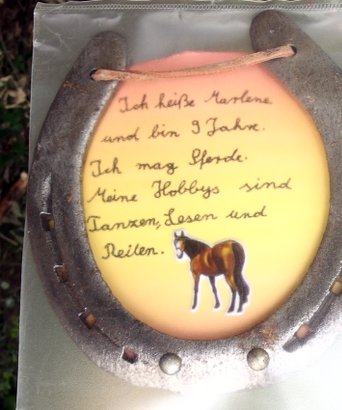 Ich heiße Marlene
und bin 9 Jahre.
Ich mag Pferde.
Meine Hobbys sind
Tanzen, Lesen und
Reiten.